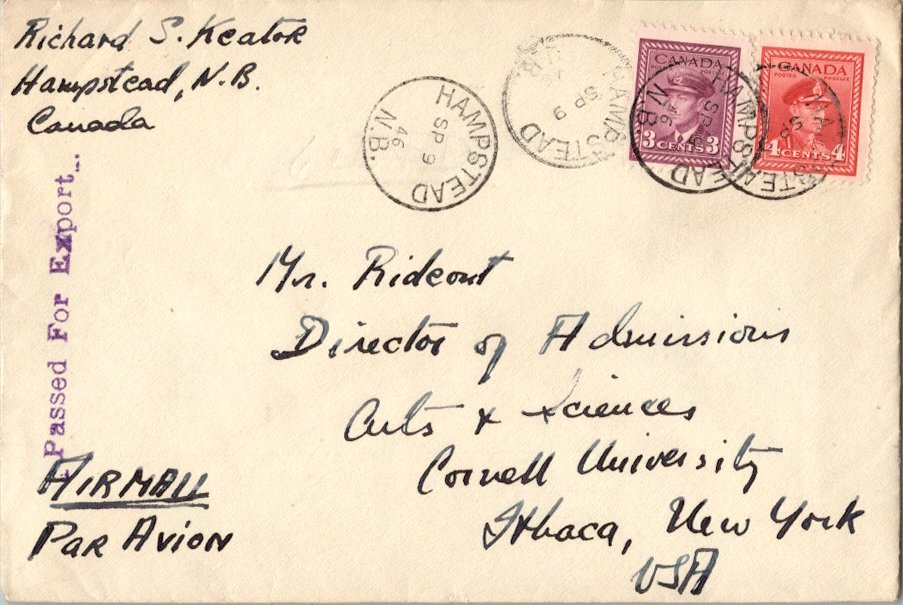 Richard S. Keator
Hampstead, N.B.
Canada
HAMPSTEAD
SP 9
46
N.B.
HAMPSTEAD
SP 9
N.B.
CANADA
POSTES POSTAGE
3 CENTS 3
HAMPSTEAD
SP 9
46
N.B.
CANADA
POSTES POSTAGE
4 CENTS 4
Passed For Export...
Mr. Rideout
Director of Admissions
Arts & Sciences
Cornell University
Ithaca, New York
USA
AIRMAIL
PAR AVION